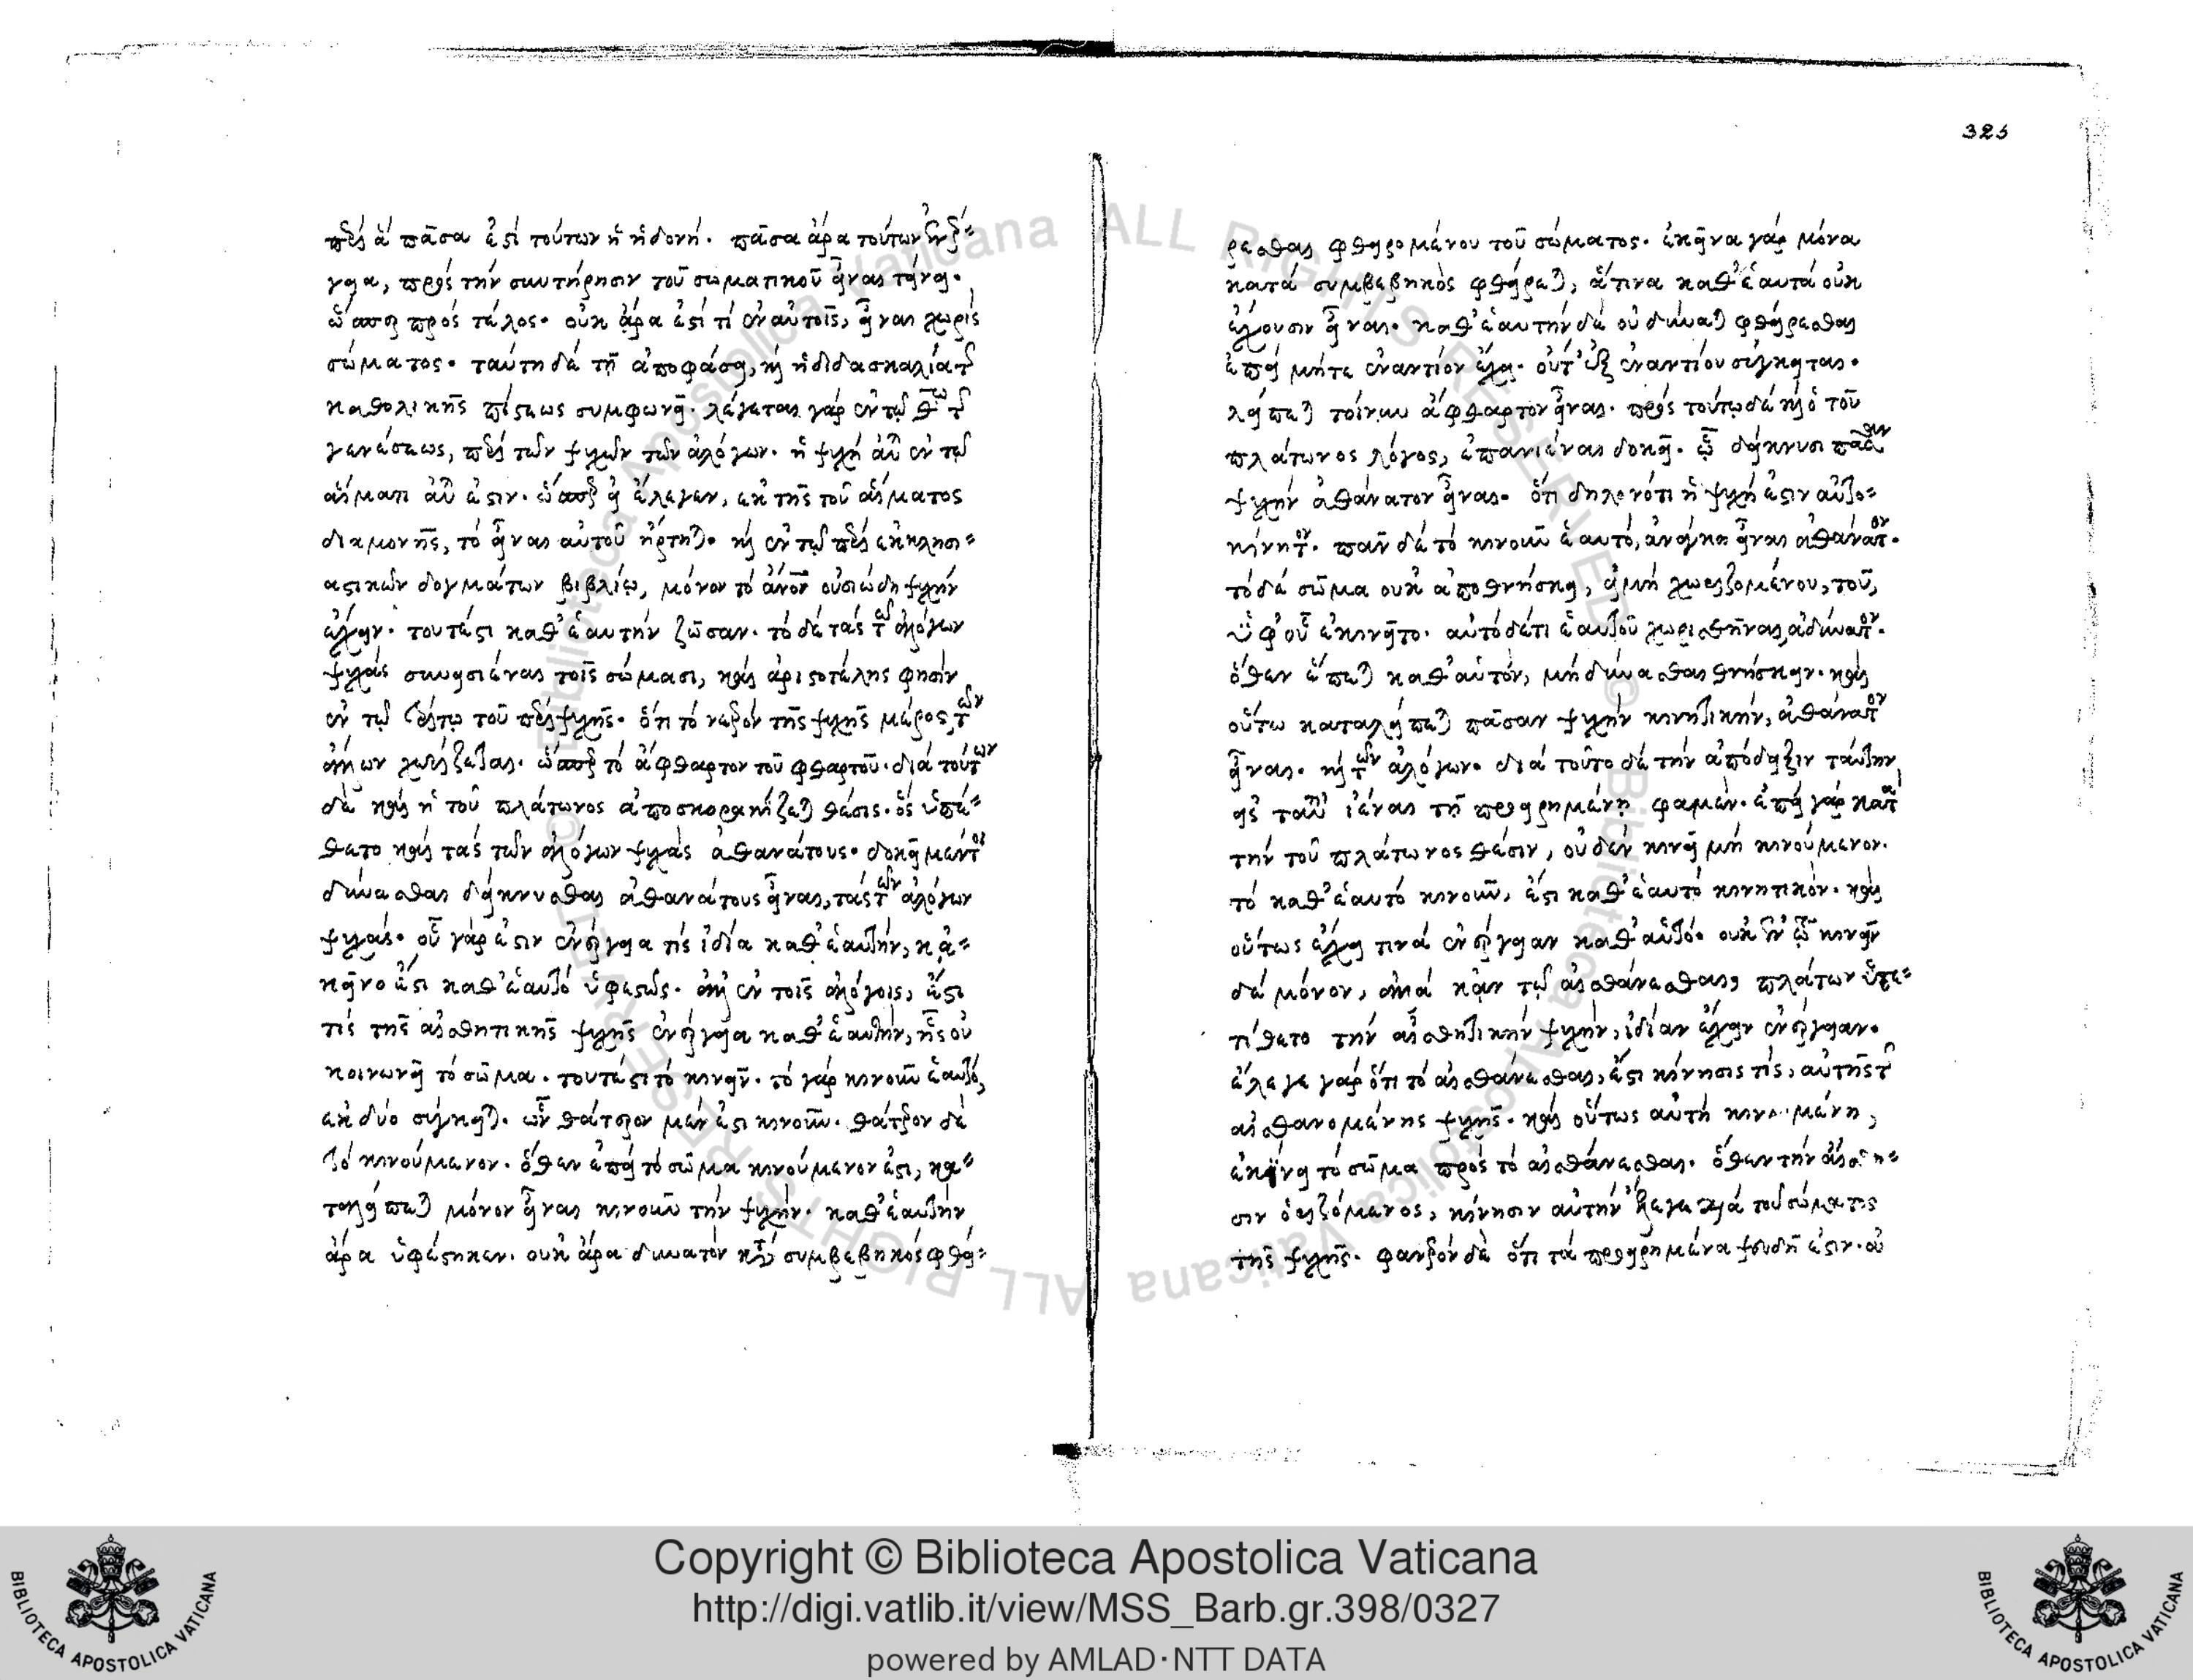 περὶ ἃ πᾶσα ἐστὶ τούτων ἡ ἡδονή. πᾶσα ἄρα τούτων ἐνέρ=
γεια, πρὸς τὴν συντήρησιν τοῦ σωματικοῦ εἶναι τείνει.
ὥσπερ πρὸς τέλος. οὐκ ἄρα ἐστί τι ἐν αὐτοῖς, εἶναι χωρὶς
σώματος. ταύτη δὲ τῇ ἀποφάσει, καὶ ἡ διδασκαλία τῆς
καθολικῆς πίστεως συμφωνεῖ. λέγεται γὰρ ἐν τῷ θῳ τῆς
γενέσεως, περὶ τῶν ψυχῶν τῶν ἀλόγων. ἡ ψυχὴ αὐτῶν ἐν τῷ
αἵματι αὐτῶν ἐστιν. ὥσπερ εἰ ἔλεγεν, ἐκ τῆς τοῦ αἵματος
διαμονῆς, τὸ εἶναι αὐτοῦ ἤρτηται. καὶ ἐν τῷ περὶ ἐκκλησι=
αστικῶν δογμάτων βιβλίῳ, μόνον τὸ ἀνον οὐσιώδη ψυχὴν
ἔχειν. τουτέστι καθ' ἑαυτὴν ζῶσαν. τὸ δὲ τὰς τῶν ἀλόγων
ψυχὰς συνουσιέναι τοῖς σώμασι, καὶ ἀριστοτέλης φησὶν
ἐν τῷ δευτέρῳ τοῦ περὶ ψυχῆς. ὅτι τὸ νοερὸν τῆς ψυχῆς μέρος τῶν
ἄλλων χωρίζεται. ὥσπερ τὸ ἄφθαρτον τοῦ φθαρτοῦ. διὰ τούτων
δὲ καὶ ἡ τοῦ πλάτωνος ἀποσκορακίζεται θέσις. ὃς ὑπέ=
θετο καὶ τὰς τῶν ἀλόγων ψυχὰς ἀθανάτους. δοκεῖ μέντοι
δύνασθαι δείκνυσθαι ἀθανάτους εἶναι, τὰς τῶν ἀλόγων
ψυχάς. οὗ γάρ ἐστιν ἐνέργεια τὶς ἰδία καθ' ἑαυτήν, κἀ=
κεῖνο ἐστὶ καθ' ἑαυτὸ ὑφεστώς. ἀλλ' ἐν τοῖς ἀλόγοις, ἔστι
τὶς τῆς αἰσθητικῆς ψυχῆς ἐνέργεια καθ' ἑαυτήν, ἧς οὐ
κοινωνεῖ τὸ σῶμα. τουτέστι τὸ κινεῖν. τὸ γὰρ κινοῦν ἑαυτό,
ἐκ δύο σύγκειται. ὧν θάτερον μέν ἐστι κινοῦν. θάτερον δὲ
τὸ κινούμενον. ὅθεν ἐπεὶ τὸ σῶμα κινούμενον ἐστι, κα=
ταλείπεται μόνον εἶναι κινοῦν τὴν ψυχήν. καθ' ἑαυτὴν
ἄρα ὑφέστηκεν. οὐκ ἄρα δυνατὸν κατὰ συμβεβηκὸς φθεί=
325
ρεσθαι φθειρομένου τοῦ σώματος. ἐκεῖνα γὰρ μόνα
κατὰ συμβεβηκὸς φθείρεται, ἅτινα καθ' ἑαυτὰ οὐκ
ἔχουσιν εἶναι. καθ' ἑαυτὴν δὲ οὐ δύναται φθείρεσθαι
ἐπεὶ μήτε ἐναντίον ἔχει. οὔτ' ἐξ ἐναντίου σύγκειται.
λείπεται τοίνυν ἄφθαρτον εἶναι. πρὸς τούτῳ δὲ καὶ ὁ τοῦ
πλάτωνος λόγος, ἐπανιέναι δοκεῖ. ᾧ δείκνυσι πᾶσαν
ψυχὴν ἀθάνατον εἶναι. ὅτι δηλονότι ἡ ψυχή ἐστιν αὐτο=
κίνητον. πᾶν δὲ τὸ κινοῦν ἑαυτό, ἀνάγκη εἶναι ἀθάνατον.
τὸ δὲ σῶμα οὐκ ἀποθνήσκει, εἰ μὴ χωριζομένου, τοῦ,
ὑφ' οὗ ἐκινεῖτο. αὐτὸ δέ τι ἑαυτοῦ χωρισθῆναι ἀδύνατον.
ὅθεν ἕπεται καθ' αὑτόν, μὴ δύνασθαι θνήσκειν. καὶ
οὕτω καταλείπεται πᾶσαν ψυχὴν κινητικήν, ἀθάνατον
εἶναι. καὶ τῶν ἀλόγων. διὰ τοῦτο δὲ τὴν ἀπόδειξιν ταύτην
εἰς ταὐτὸν ἰέναι τῇ προειρημένῃ φαμέν. ἐπεὶ γὰρ κατὰ
τὴν τοῦ πλάτωνος θέσιν, οὐδὲν κινεῖ μὴ κινούμενον.
τὸ καθ' ἑαυτὸ κινοῦν, ἐστὶ καθ' ἑαυτὸ κινητικόν. καὶ
οὕτως ἔχει τινὰ ἐνέργειαν καθ' αὑτό. οὐκ ἐν τῷ κινεῖν
δὲ μόνον, ἀλλὰ κἀν τῷ αἰσθάνεσθαι, πλάτων ὑπε=
τίθετο τὴν αἰσθητικὴν ψυχήν, ἰδίαν ἔχειν ἐνέργειαν.
ἔλεγε γὰρ ὅτι τὸ αἰσθάνεσθαι, ἐστὶ κίνησις τίς, αὐτῆς τῆς
αἰσθανομένης ψυχῆς. καὶ οὕτως αὐτὴ κινουμένη,
ἐκίνει τὸ σῶμα πρὸς τὸ αἰσθάνεσθαι. ὅθεν τὴν αἴσθη=
σιν ὁριζόμενος, κίνησιν αὐτὴν ἔλεγε διὰ τοῦ σώματος
τῆς ψυχῆς. φανερὸν δὲ ὅτι τὰ προειρημένα ψευδῆ ἐστιν. οὐ
Copyright © Biblioteca Apostolica Vaticana
http://digi.vatlib.it/view/MSS_Barb.gr.398/0327
powered by AMLAD·NTT DATA